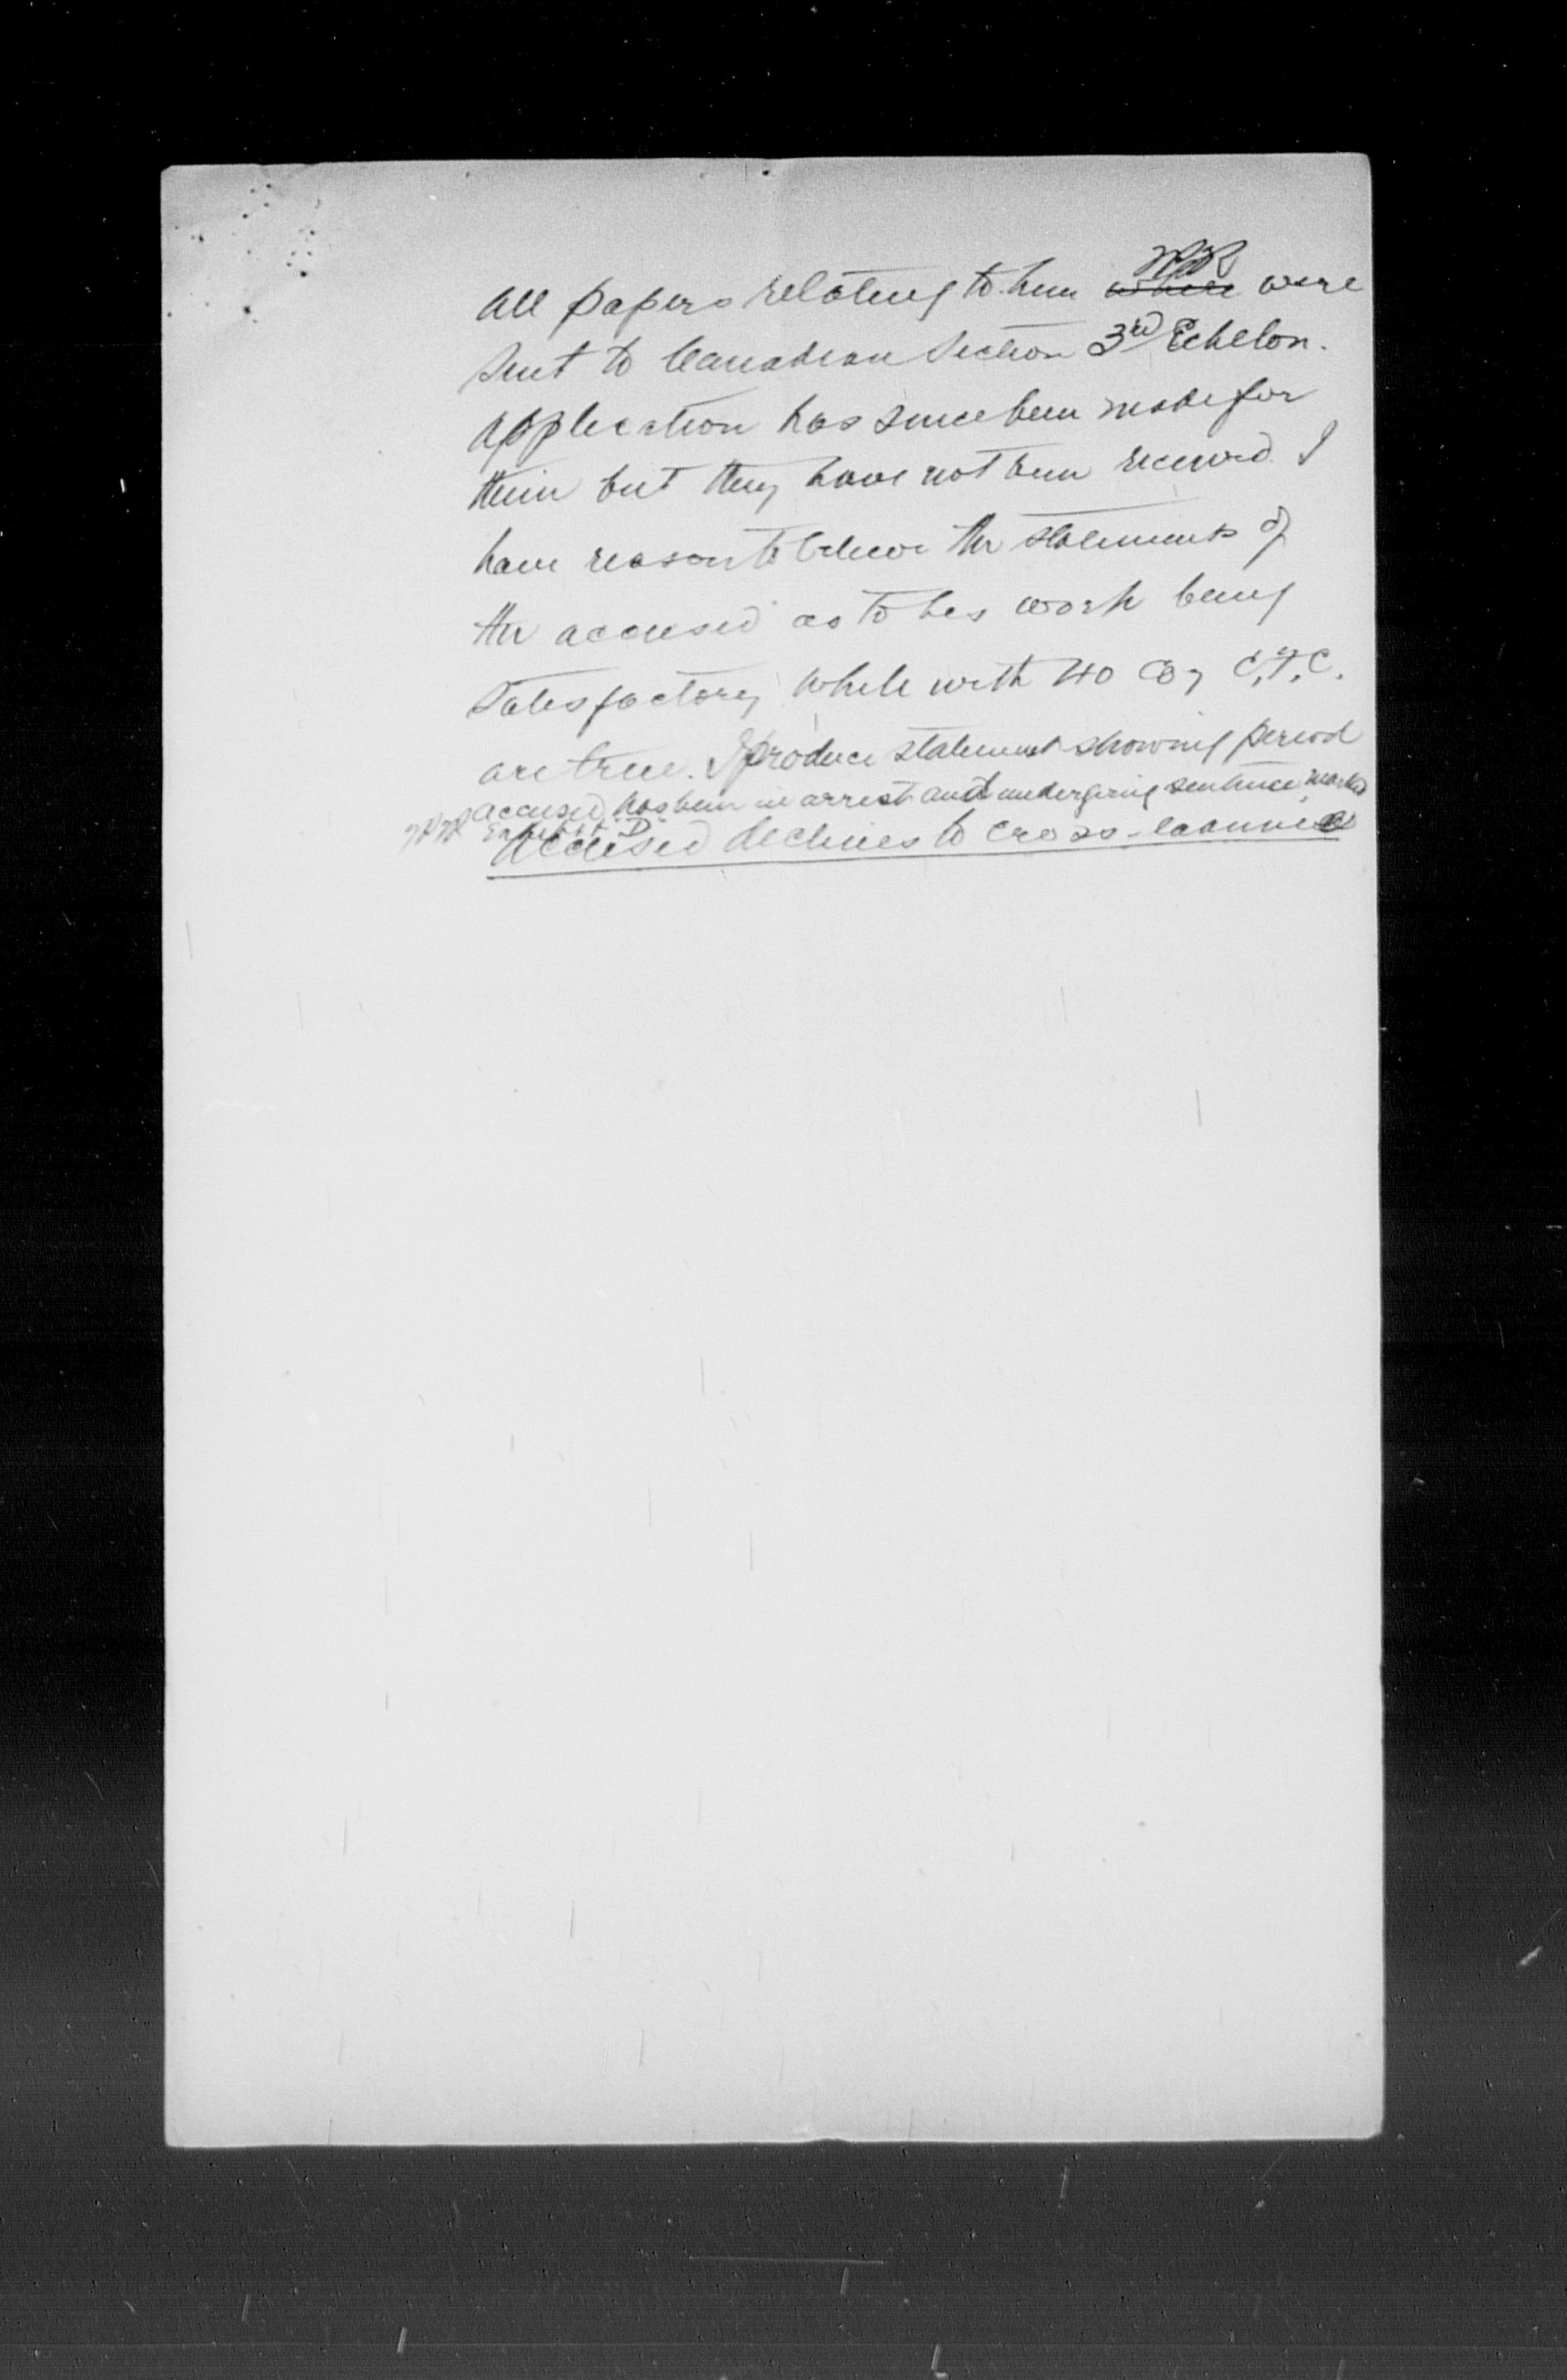 All papers relating to him where were
sent to Canadian Section 3rd Echelon.
Application has since been made for
them but they have not been received. I
have reason to believe the statements of
the accused as to his work being
satisfactory while with 40 Coy C.F.C.
are true. I produce statement showing period
accused has been in arrest and undergoing sentence, marked
Exhibit "D".
Accused declines to cross-examine